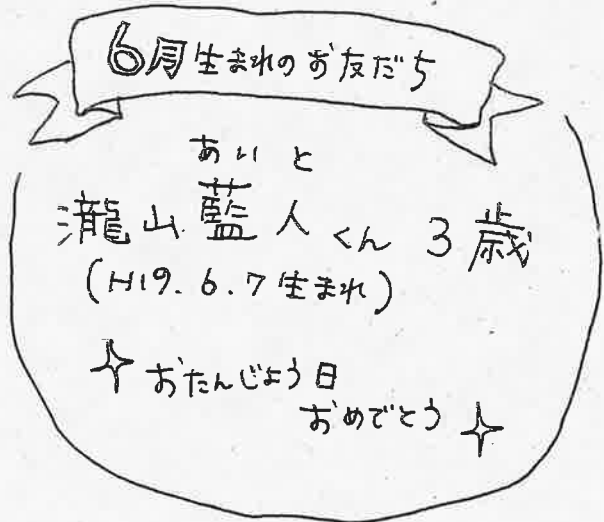 6月生まれのお友だち
あいと
瀧山 藍人 くん 3歳
(H19.6.7生まれ)
おたんじょう日
おめでとう